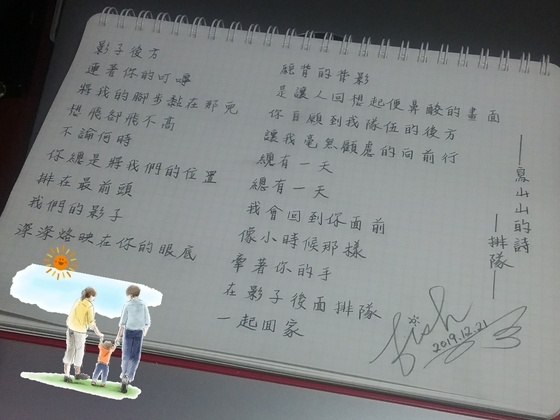 影子後方
連著你的叮嚀
將我的腳步黏在那兒
想飛都飛不高
不論何時
你總是將我們的位置
排在最前頭
我們的影子
深深烙映在你的眼底
駝背的背影
是讓人回想起便鼻酸的畫面
你自願到我隊伍的後方
讓我毫無顧慮的向前行
總有一天
總有一天
我會回到你面前
像小時候那樣
牽著你的手
在影子後面排隊
一起回家
——烏山山的詩
——排隊——
fish
2019.12.21